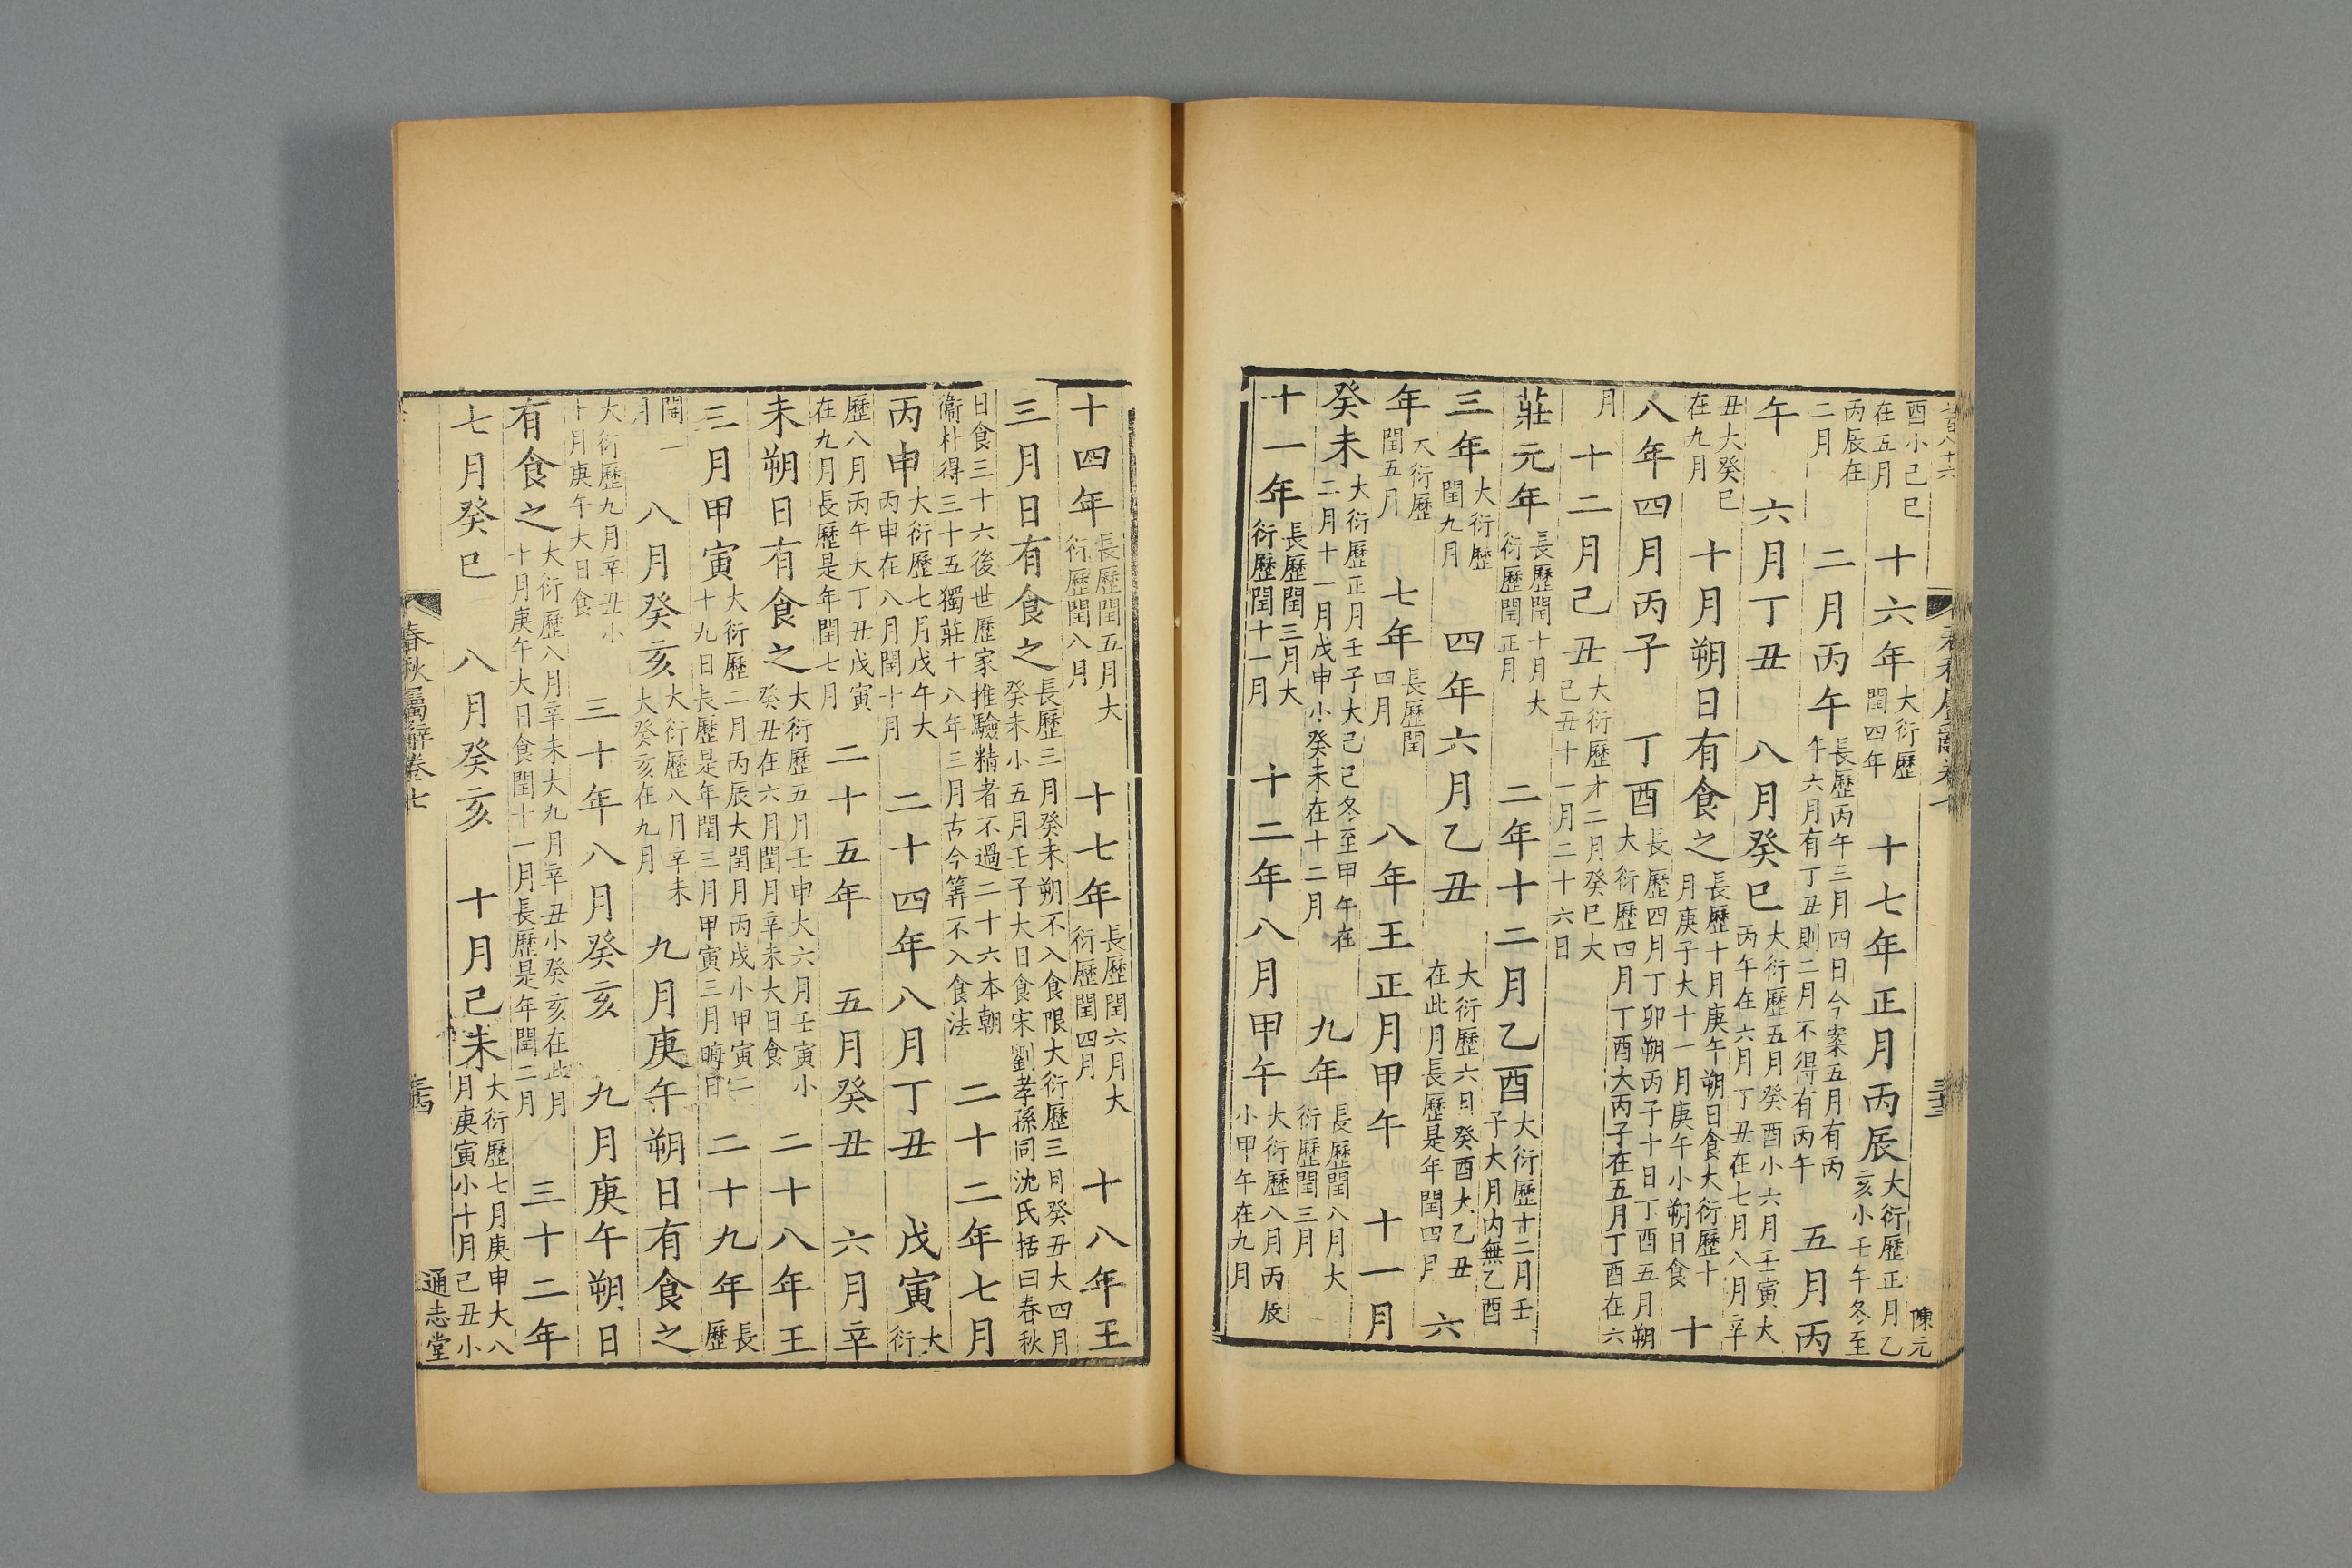 酉小己巳在五月　十六年大衍歷閏四年　十七年正月丙辰大衍歷正月乙亥小壬午冬至
丙辰在二月　二月丙午長歷丙午三月四日今案五月有丙午六月有丁丑則二月不得有丙午　五月丙
午　六月丁丑　八月癸巳大衍歷五月癸酉小六月壬寅大丙午在六月丁丑在七月八月辛
丑大癸巳在九月　十月朔日有食之長歷十月庚午朔日食大衍歷十月庚子大十一月庚午小朔日食　十
八年四月丙子　丁酉長歷四月丁卯朔丙子十日丁酉五月朔大衍歷四月丁酉大丙子在五月丁酉在六
月　十二月己丑大衍歷才二月癸巳大己丑十一月二十六日
莊元年長歷閏十月大衍歷閏正月　二年十二月乙酉大衍歷十二月壬子大月内無乙酉
三年大衍歷閏九月　四年六月乙丑大衍歷六月癸酉大乙丑在此月長歷是年閏四月　六
年大衍歷閏五月　七年長歷閏四月　八年王正月甲午　十一月
癸未大衍歷正月壬子大己己冬至甲午在二月十一月戊申小癸未在十二月　九年長歷閏八月大衍歷閏三月
十一年長歷閏三月大衍歷閏十一月　十二年八月甲午大衍歷八月丙辰小甲午在九月
陳元
十四年長歷閏五月大衍歷閏八月　十七年長歷閏六月大衍歷閏四月　十八年王
三月日有食之長歷三月癸未朔不入食限大衍歷三月癸丑大四月癸未小五月壬子大日食宋劉孝孫同沈氏括曰春秋
日食三十六後世歷家推驗精者不過二十六本朝衞朴得三十五獨莊十八年三月古今筭不入食法　二十二年七月
丙申大衍歷七月戊午大丙申在八月閏十月　二十四年八月丁丑　戊寅大衍
歷八月丙午大丁丑戊寅在九月長歷是年閏七月　二十五年　五月癸丑　六月辛
未朔日有食之大衍歷五月壬申大六月壬寅小癸丑在六月閏月辛未大日食　二十八年王
三月甲寅大衍歷二月丙辰大閏月丙戌小甲寅二十九日長歷是年閏三月甲寅三月晦日　二十九年長歷
閏二月　八月癸亥大衍歷八月辛未大癸亥在九月　九月庚午朔日有食之
大衍歷九月辛丑小十月庚午大日食　三十年八月癸亥　九月庚午朔日
有食之大衍歷八月辛未大九月辛丑小癸亥在此月十月庚午大日食閏十一月長歷是年閏二月　三十二年
七月癸巳　八月癸亥　十月己未大衍歷七月庚申大八月庚寅小十月己丑小
春秋屬辭卷七
通志堂